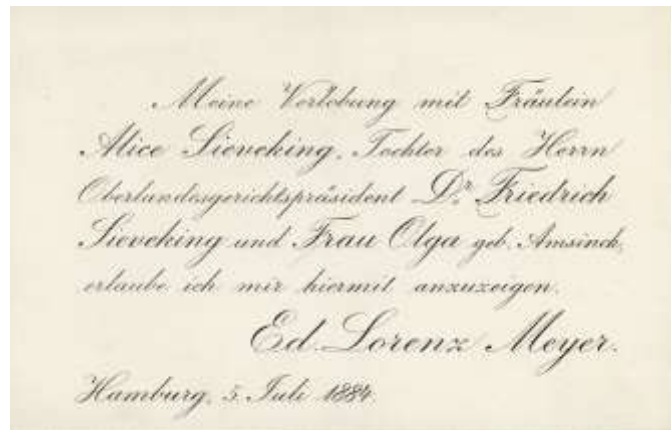 Meine Verlobung mit Fräulein
Alice Sieveking, Tochter des Herrn
Oberlandesgerichtspräsident Dr. Friedrich
Sieveking und Frau Olga geb. Amsinck,
erlaube ich mir hiermit anzuzeigen.
Ed. Lorenz Meyer.
Hamburg, 5. Juli 1884.